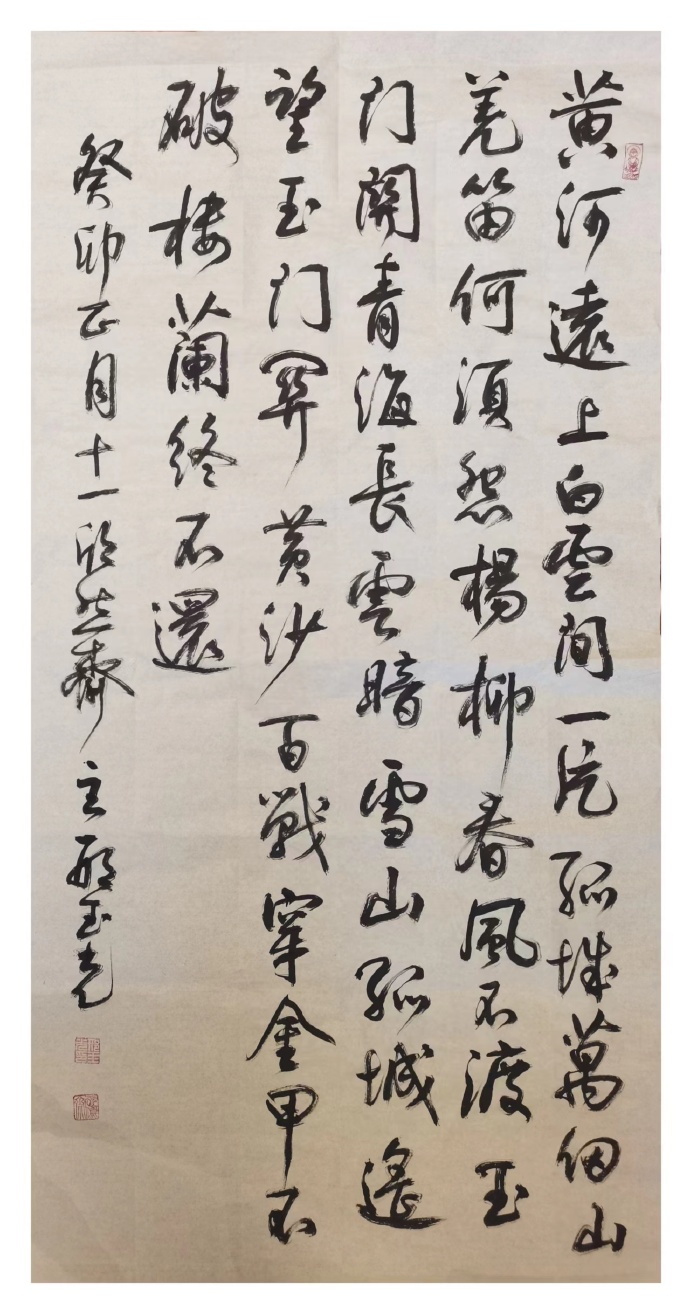 黄河遠上白雲間一片孤城萬仞山
羌笛何須怨楊柳春風不渡玉
門關青海長雲暗雪山孤城遙
望玉門関黄沙百戰穿金甲不
破楼蘭終不還
癸卯正月十一欣然齋主